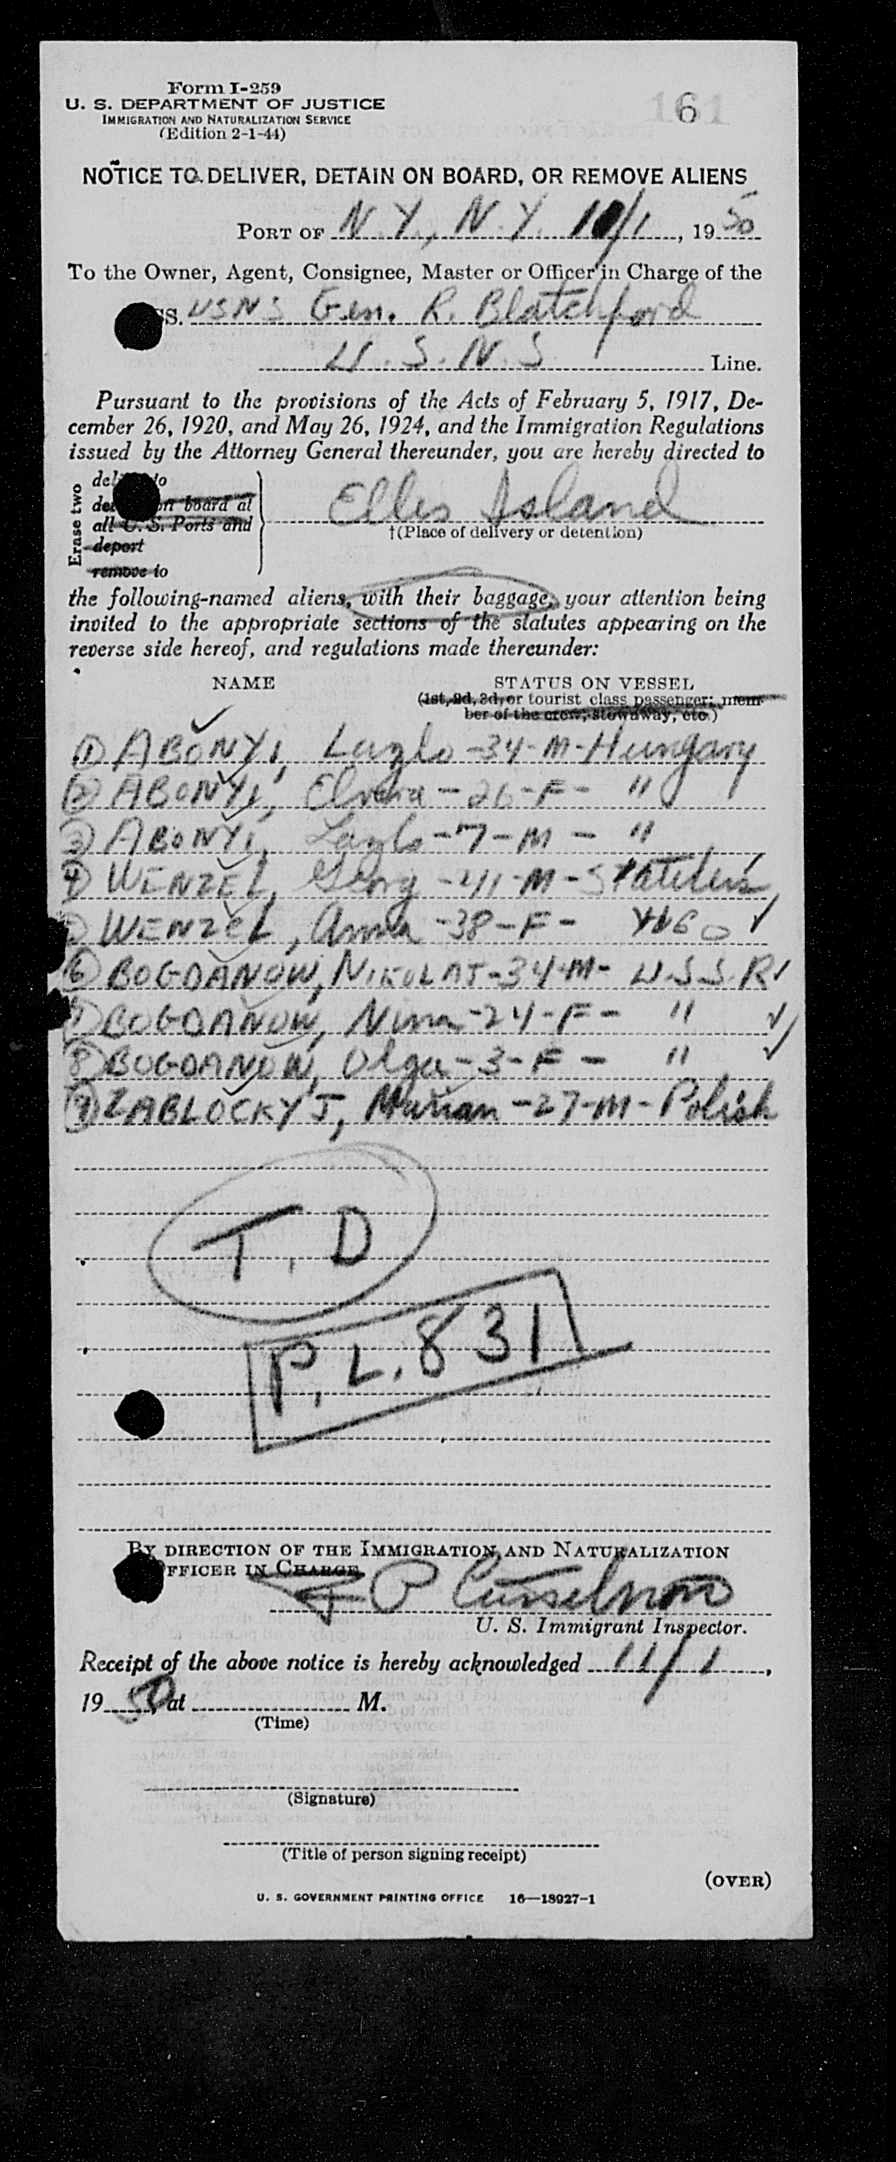 Form I-259
U. S. DEPARTMENT OF JUSTICE
IMMIGRATION AND NATURALIZATION SERVICE
(Edition 2-1-44)
161
NOTICE TO DELIVER, DETAIN ON BOARD, OR REMOVE ALIENS
PORT OF N.Y., N.Y. 11/1, 1950
To the Owner, Agent, Consignee, Master or Officer in Charge of the
SS. USNS Gen. R. Blatchford
U.S.N.S Line.
Pursuant to the provisions of the Acts of February 5, 1917, De-
cember 26, 1920, and May 26, 1924, and the Immigration Regulations
issued by the Attorney General thereunder, you are hereby directed to
Erase two
deliver to
detain on board at
all U. S. Ports and
deport
remove to
Ellis Island
†(Place of delivery or detention)
the following-named aliens, with their baggage, your attention being
invited to the appropriate sections of the statutes appearing on the
reverse side hereof, and regulations made thereunder:
NAME STATUS ON VESSEL
(1st, 2d, 3d, or tourist class passenger; mem-
ber of the crew; stowaway, etc.)
① ABONYI, Lazlo - 34 - M - Hungary
② ABONYI, Elvira - 26 - F - "
③ ABONYI, Lazlo - 7 - M - "
④ WENZEL, Georg - 41 - M - Stateless
⑤ WENZEL, Anna - 38 - F - YUGO ✓
⑥ BOGDANOW, NIKOLAJ - 34 - M - U.S.S.R ✓
⑦ BOGDANOW, Nina - 24 - F - " ✓
⑧ BOGDANOW, Olga - 3 - F - " ✓
⑨ ZABLOCKYJ, Marian - 27 - M - Polish
T.D
P.L. 831
BY DIRECTION OF THE IMMIGRATION AND NATURALIZATION
OFFICER IN CHARGE
U. S. Immigrant Inspector.
Receipt of the above notice is hereby acknowledged 11/1,
1950, at M.
(Time)
(Signature)
(Title of person signing receipt)
(OVER)
U. S. GOVERNMENT PRINTING OFFICE 16—18927-1